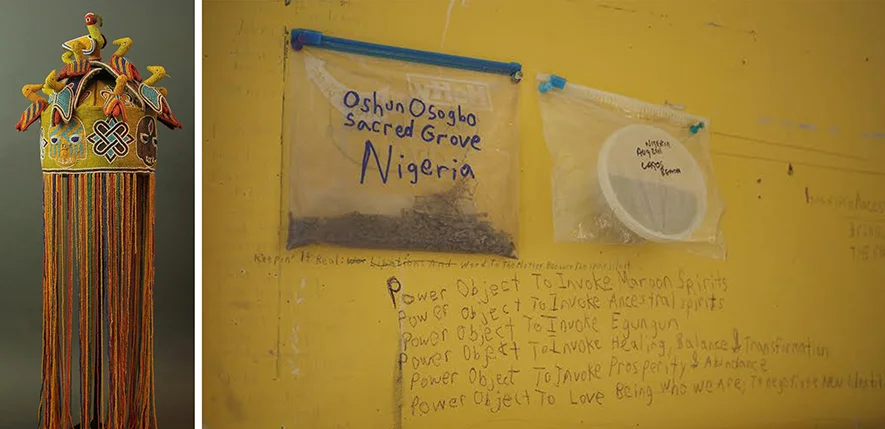 Oshun Osogbo
Sacred Grove
Nigeria
Nigeria
Keepin' It Real: Libations And Word To The Mother
Power Object To Invoke Maroon Spirits
Power Object To Invoke Ancestral Spirits
Power Object To Invoke Egungun
Power Object To Invoke Healing, Balance & Transformation
Power Object To Invoke Prosperity & Abundance
Power Object To Love Being Who we Are, To negotiate New